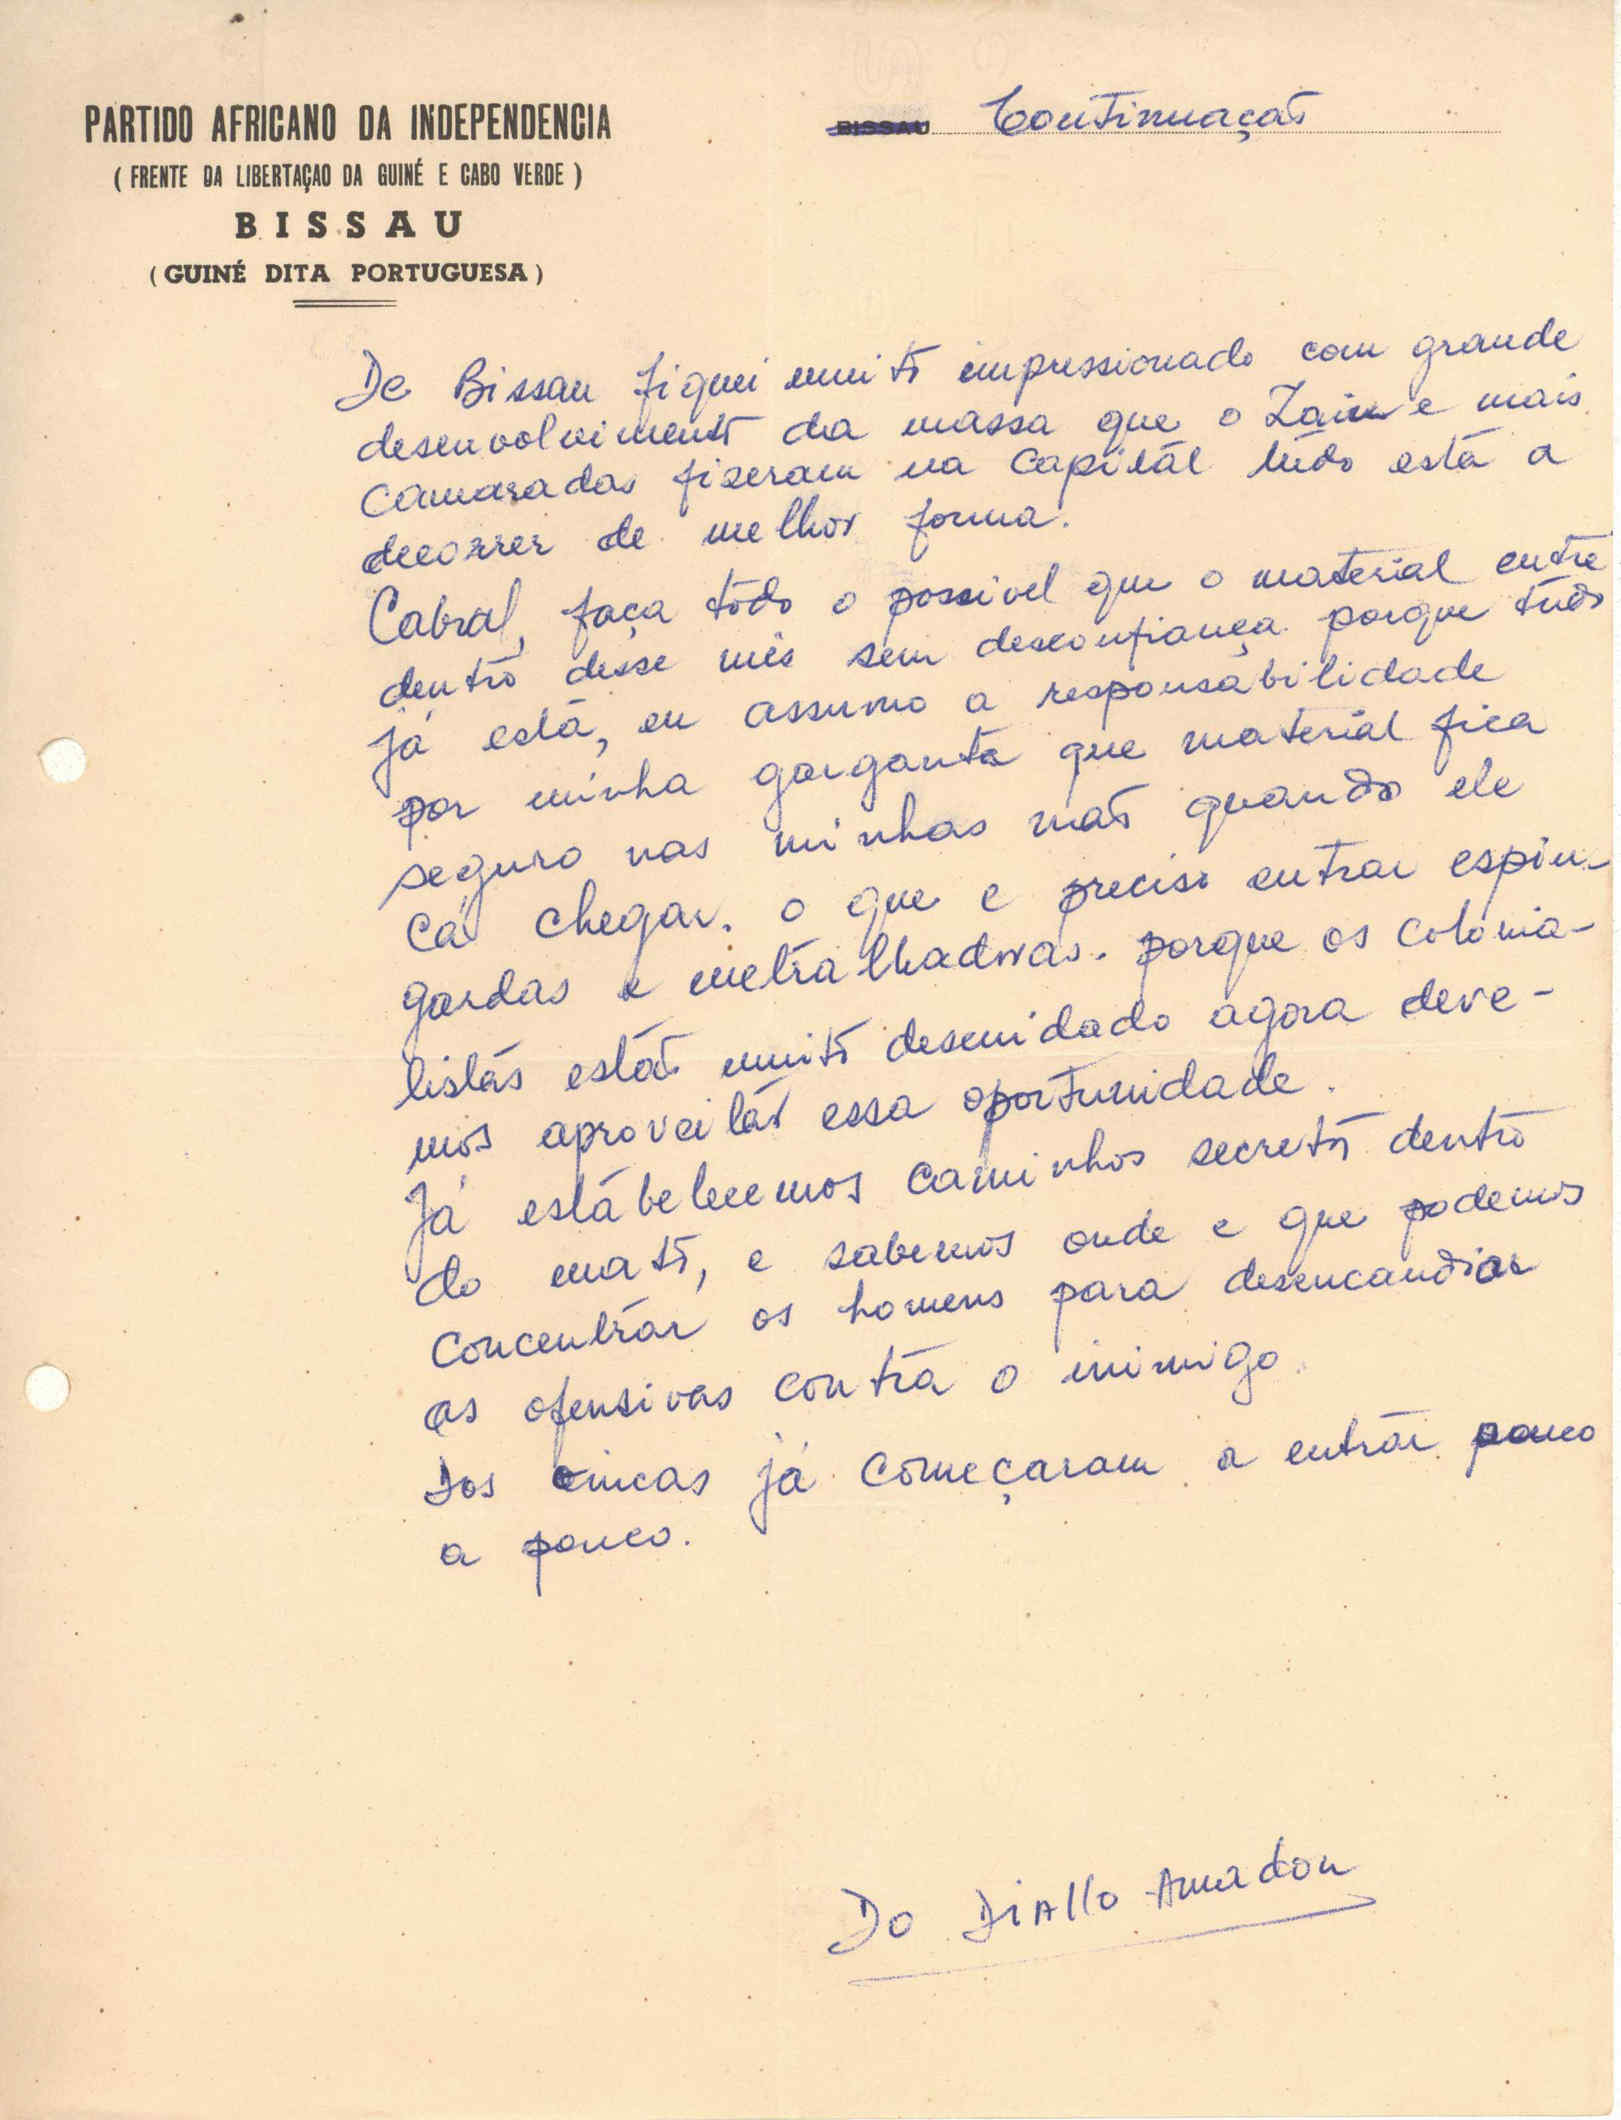 PARTIDO AFRICANO DA INDEPENDENCIA
( FRENTE DA LIBERTAÇAO DA GUINÉ E CABO VERDE )
BISSAU
( GUINÉ DITA PORTUGUESA )
BISSAU Continuação
De Bissau fiquei muito impressionado com grande
desenvolvimento da massa que o Zain e mais
camaradas fizeram na capitál túdo está a
decorrer de melhor forma.
Cabral, faça tôdo o possivel que o material entre
dentro desse mês sem desconfiança porque tudo
já está, eu assumo a responsabilidade
por minha garganta que material fica
seguro nas minhas mão quando ele
cá chegar. o que e preciso entrar espin-
gardas e metralhadoras. porque os colonia-
listás estão muito descuidado agora deve-
mos aproveitár essa oportunidade.
Já estábelecemos caminhos secreto dentro
do mato, e sabemos onde e que podemos
concentrár os homens para desencandiar
as ofensivas contra o inimigo.
Dos já começaram a entrár pouco
a pouco.
Do Diallo Amadou